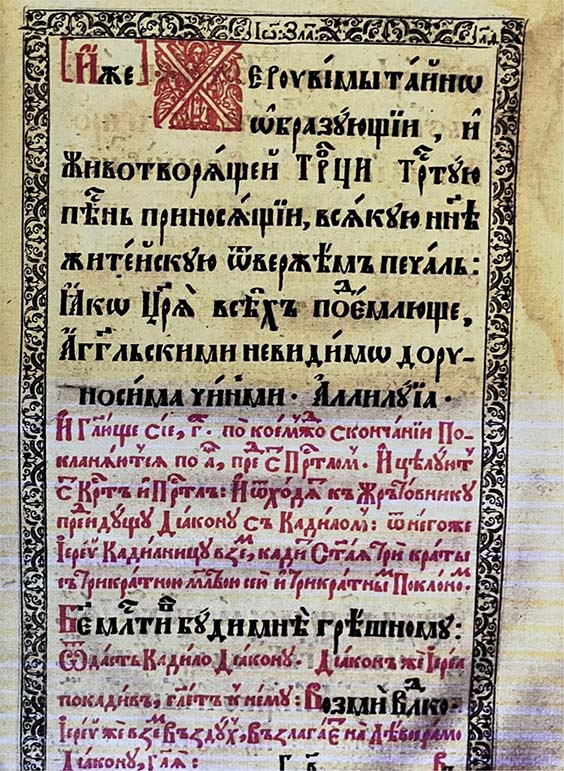 Іѡ: Зла:
[И́же] Херꙋвімы та́йнѡ
ѡ҆бразꙋ́ющїи, и҆
Животворѧ́щей Трⷪ҇ци Трⷭ҇тꙋ́ю
пѣ́снь приносѧ́щїи, всѧ́кꙋю нн҃ѣ
жите́йскꙋю ѿве́ржѣмъ печа́ль:
Ꙗ҆́кѡ Цр҃ѧ̀ всѣ́хъ поⷣе́млюще,
А҆́гг҃льскими невиди́мѡ дорꙋ-
носи́ма чи́нми. А҆ллилꙋ́їа.
И҆ Гл҃юще сїе, г҃. по кое́мⷤдо сконча́нїи По-
кланѧ́ютсѧ по а҃, преⷣ с҃ Прⷭ҇тломⸯ. И҆ цѣлꙋ́ютъ
с҃ Крⷭ҇тъ и҆ Прⷭ҇тлъ: И҆ ѿхо́дѧⷮ къ Же́ртовникꙋ
преидꙋ́щꙋ Дїа́конꙋ съ Кади́ломъ: ѿ негоже
І҆ере́й Кади́лницꙋ взеⷨ, кади́ⷮ Ст҃а́ѧ Три́ кра́ты
съ Трикра́тною мл҃вою сею и҆ Трикра́тныⷨ Покло́ноⷨ.
Бж҃е млⷭ҇тивъ бꙋ́ди мнѣ̀ грѣ́шномꙋ:
Ѿда́стъ Кади́ло Дїа́конꙋ. Дїа́конъ же І҆ере́а
покади́въ, гл҃етъ к немꙋ: Возмѝ Влⷣко.
І҆ере́й же взеⷨ Въздꙋ́х, възлага́еⷮ на лѣ́вое ра́мо
Дїа́конꙋ, гл҃ѧ: